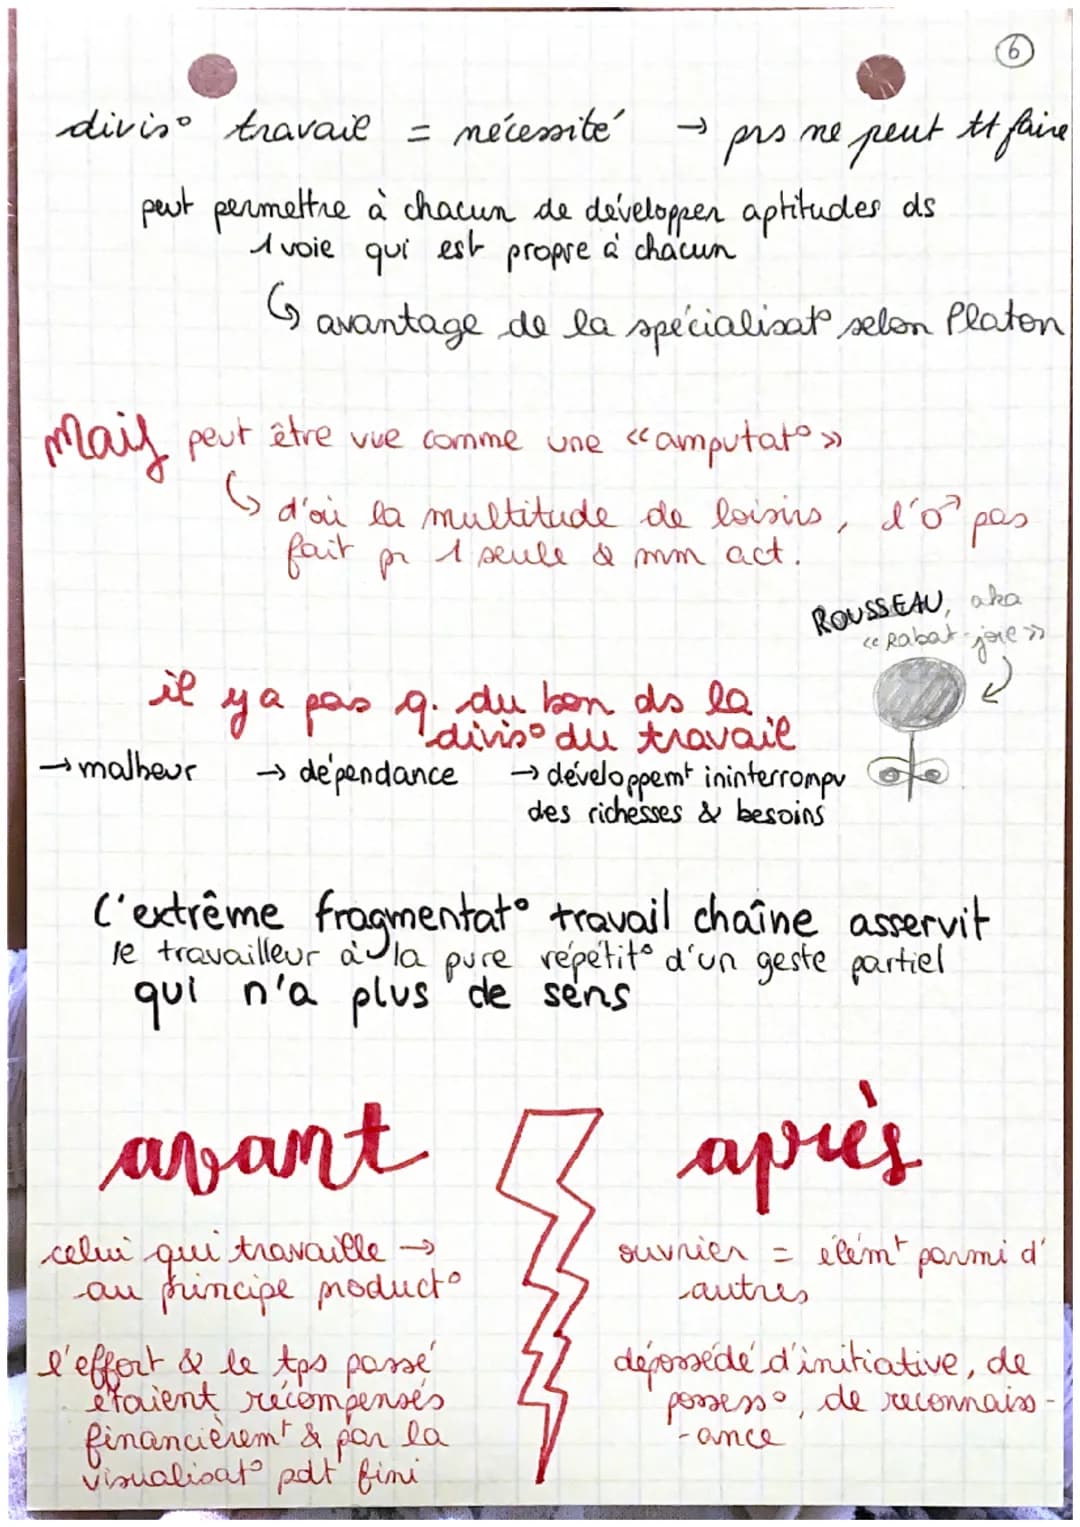 6
divis° travail = nécessité → prs ne peut tt faire
peut permettre à chacun de développer aptitudes ds
1 voie qui est propre à chacun
↳ avantage de la spécialisat° selon Platon
Mais peut être vue comme une «amputat°»
↳ d'où la multitude de loisirs, l'♂ pas
fait pr 1 seule & mm act.
ROUSSEAU, aka
«Rabat-joie»
il y a pas q. du bon ds la
divis° du travail
→ malheur → dépendance → développemt ininterrompu
des richesses & besoins
L'extrême fragmentat° travail chaîne asservit
le travailleur à la pure répétit° d'un geste partiel
qui n'a plus de sens
avant après
celui qui travaille →
au principe product°
l'effort & le tps passé
étaient récompensés
financièremt & par la
visualisat° pdt fini
ouvrier = élémt parmi d'
autres
dépossédé d'initiative, de
possess°, de reconnaiss-
-ance